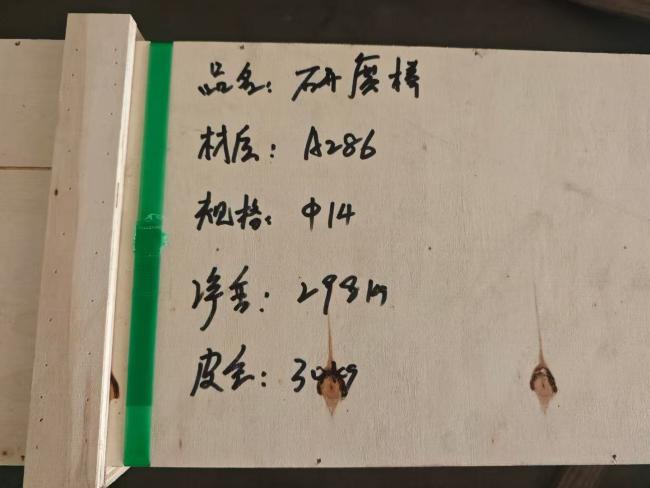 品名: 研磨棒
材质: A286
规格: Φ14
净重: 298kg
皮重: 30kg